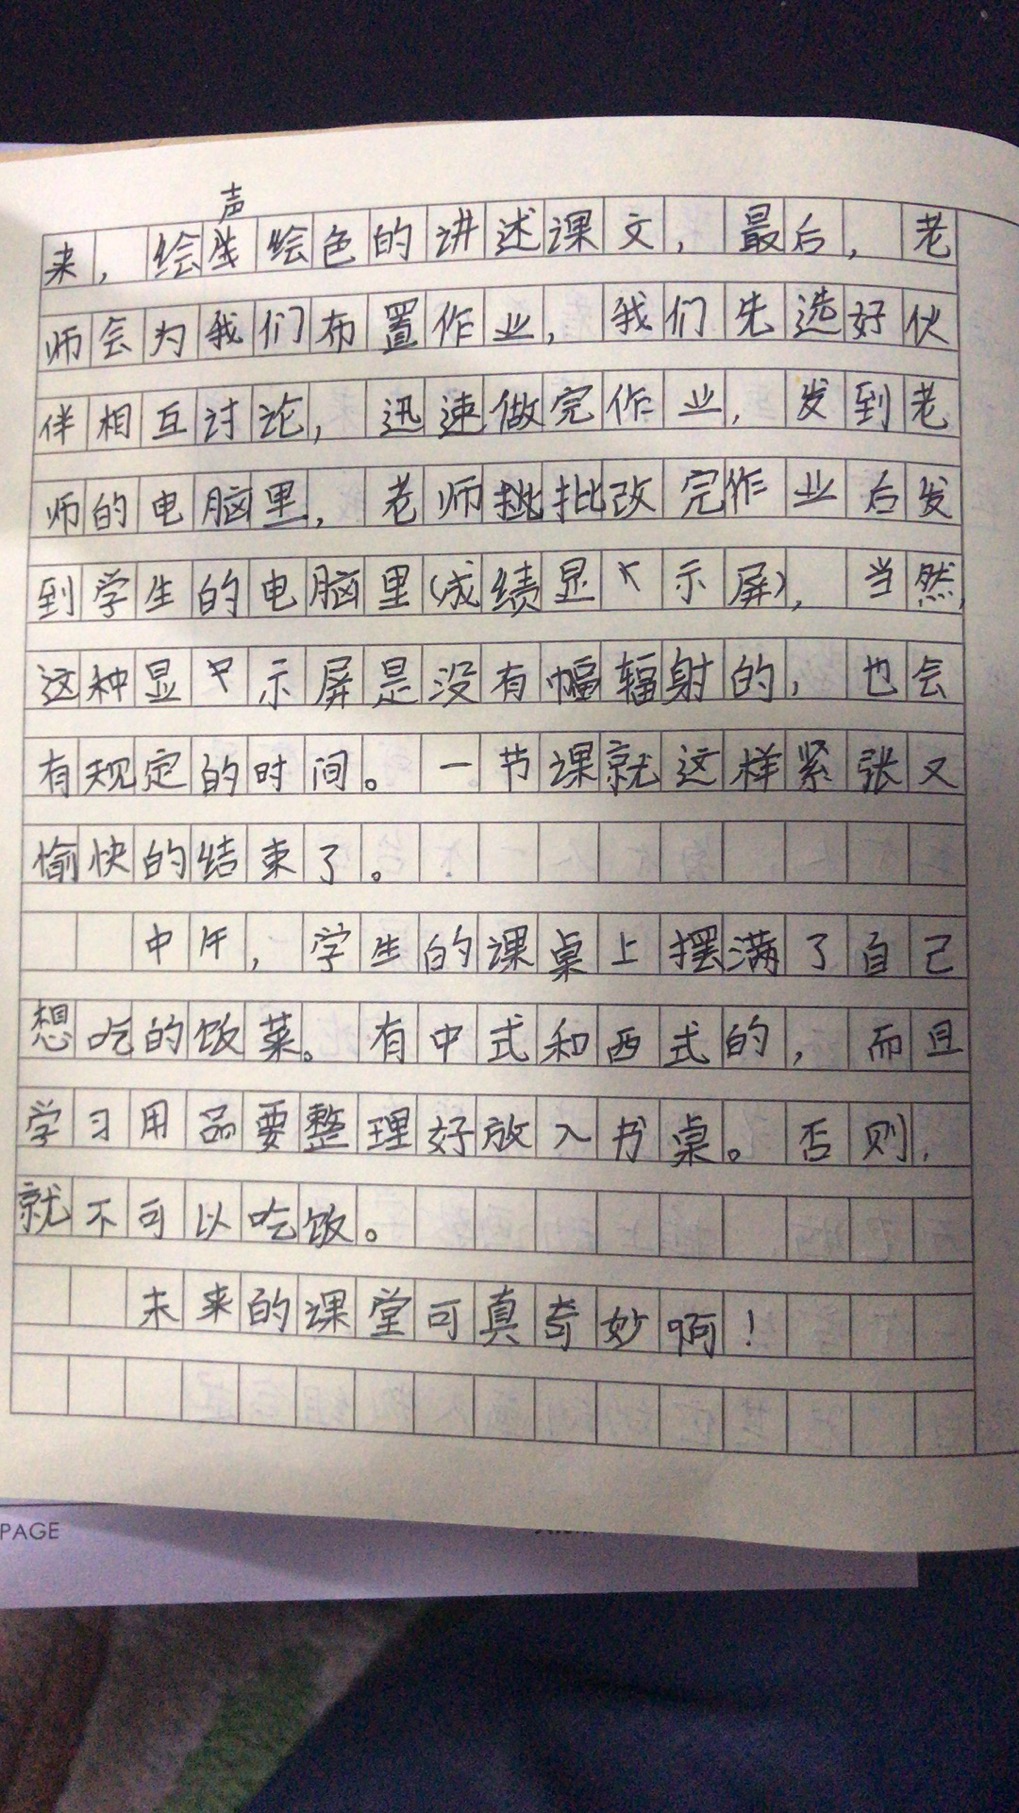 声
来，绘生绘色的讲述课文，最后，老
师会为我们布置作业，我们先选好伙
伴相互讨论，迅速做完作业，发到老
师的电脑里，老师批改完作业后发
到学生的电脑里(成绩显示屏)，当然，
这种显示屏是没有辐射的，也会
有规定的时间。一节课就这样紧张又
愉快的结束了。
中午，学生的课桌上摆满了自己
想吃的饭菜。有中式和西式的，而且
学习用品要整理好放入书桌。否则，
就不可以吃饭。
未来的课堂可真奇妙啊！
PAGE